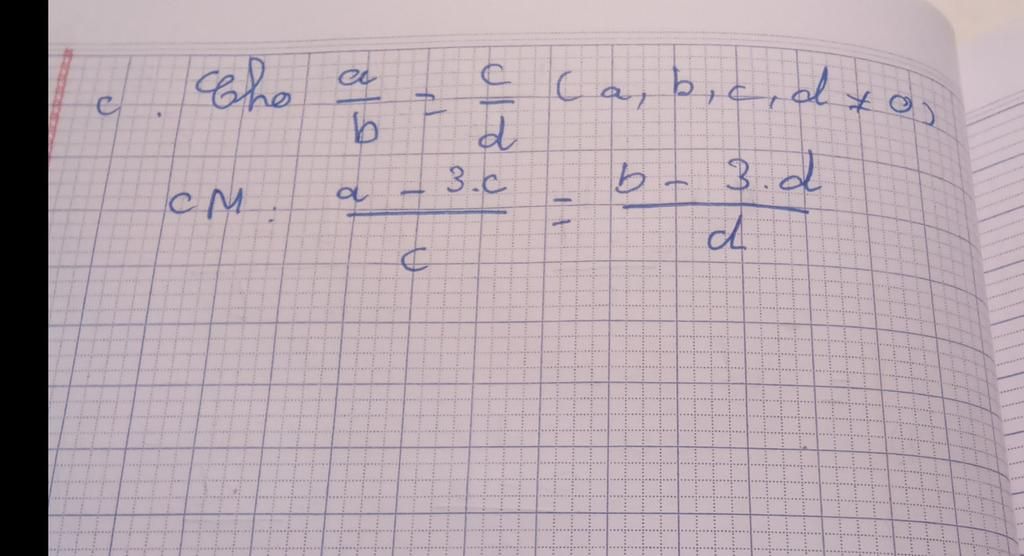 c. Cho a/b = c/d (a, b, c, d ≠ 0)
CM: a - 3.c / c = b - 3.d / d